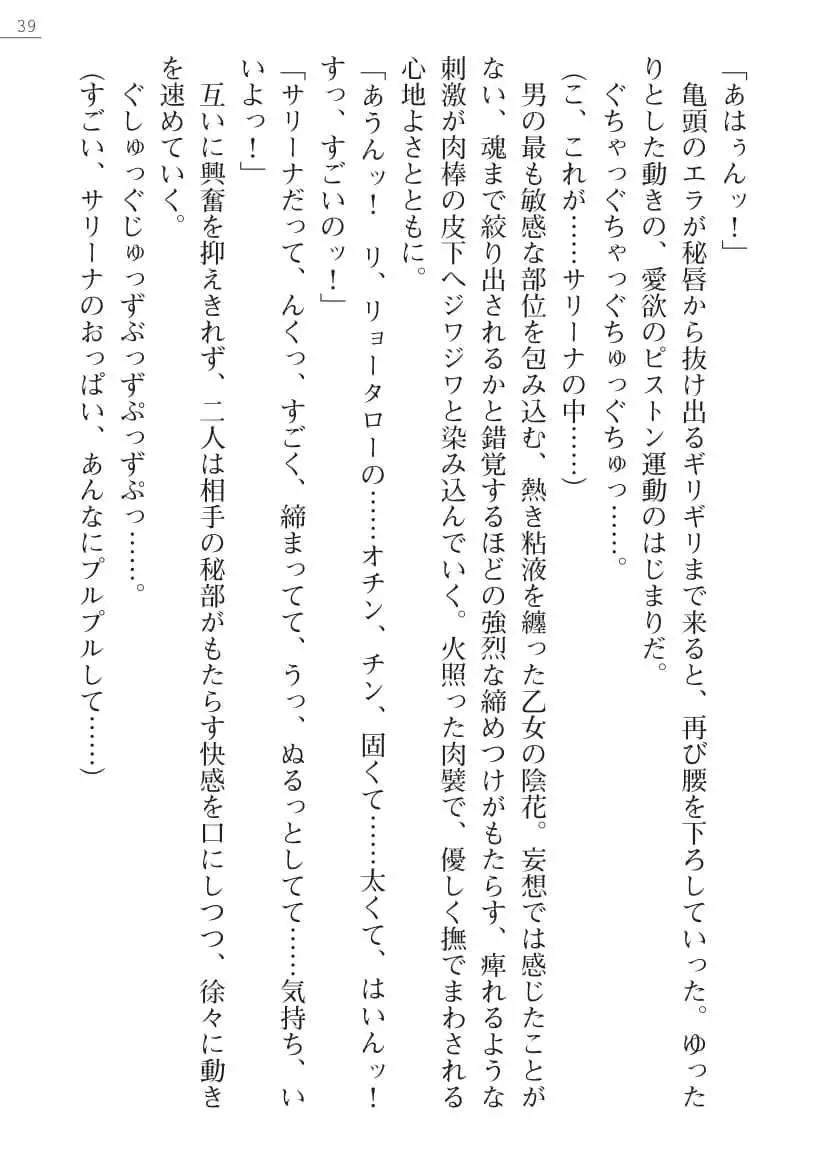 39
「あはぅんッ！」
亀頭のエラが秘唇から抜け出るギリギリまで来ると、再び腰を下ろしていった。ゆった
りとした動きの、愛欲のピストン運動のはじまりだ。
ぐちゃっぐちゃっぐちゅっぐちゅっ……。
（こ、これが……サリーナの中……）
男の最も敏感な部位を包み込む、熱き粘液を纏った乙女の陰花。妄想では感じたことが
ない、魂まで絞り出されるかと錯覚するほどの強烈な締めつけがもたらす、痺れるような
刺激が肉棒の皮下へジワジワと染み込んでいく。火照った肉襞で、優しく撫でまわされる
心地よさとともに。
「あうんッ！　リ、リョータローの……オチン、チン、固くて……太くて、はいんッ！
すっ、すごいのッ！」
「サリーナだって、んくっ、すごく、締まってて、うっ、ぬるっとしてて……気持ち、い
いよっ！」
互いに興奮を抑えきれず、二人は相手の秘部がもたらす快感を口にしつつ、徐々に動き
を速めていく。
ぐしゅっぐじゅっずぶっずぷっずぷっ……。
（すごい、サリーナのおっぱい、あんなにプルプルして……）